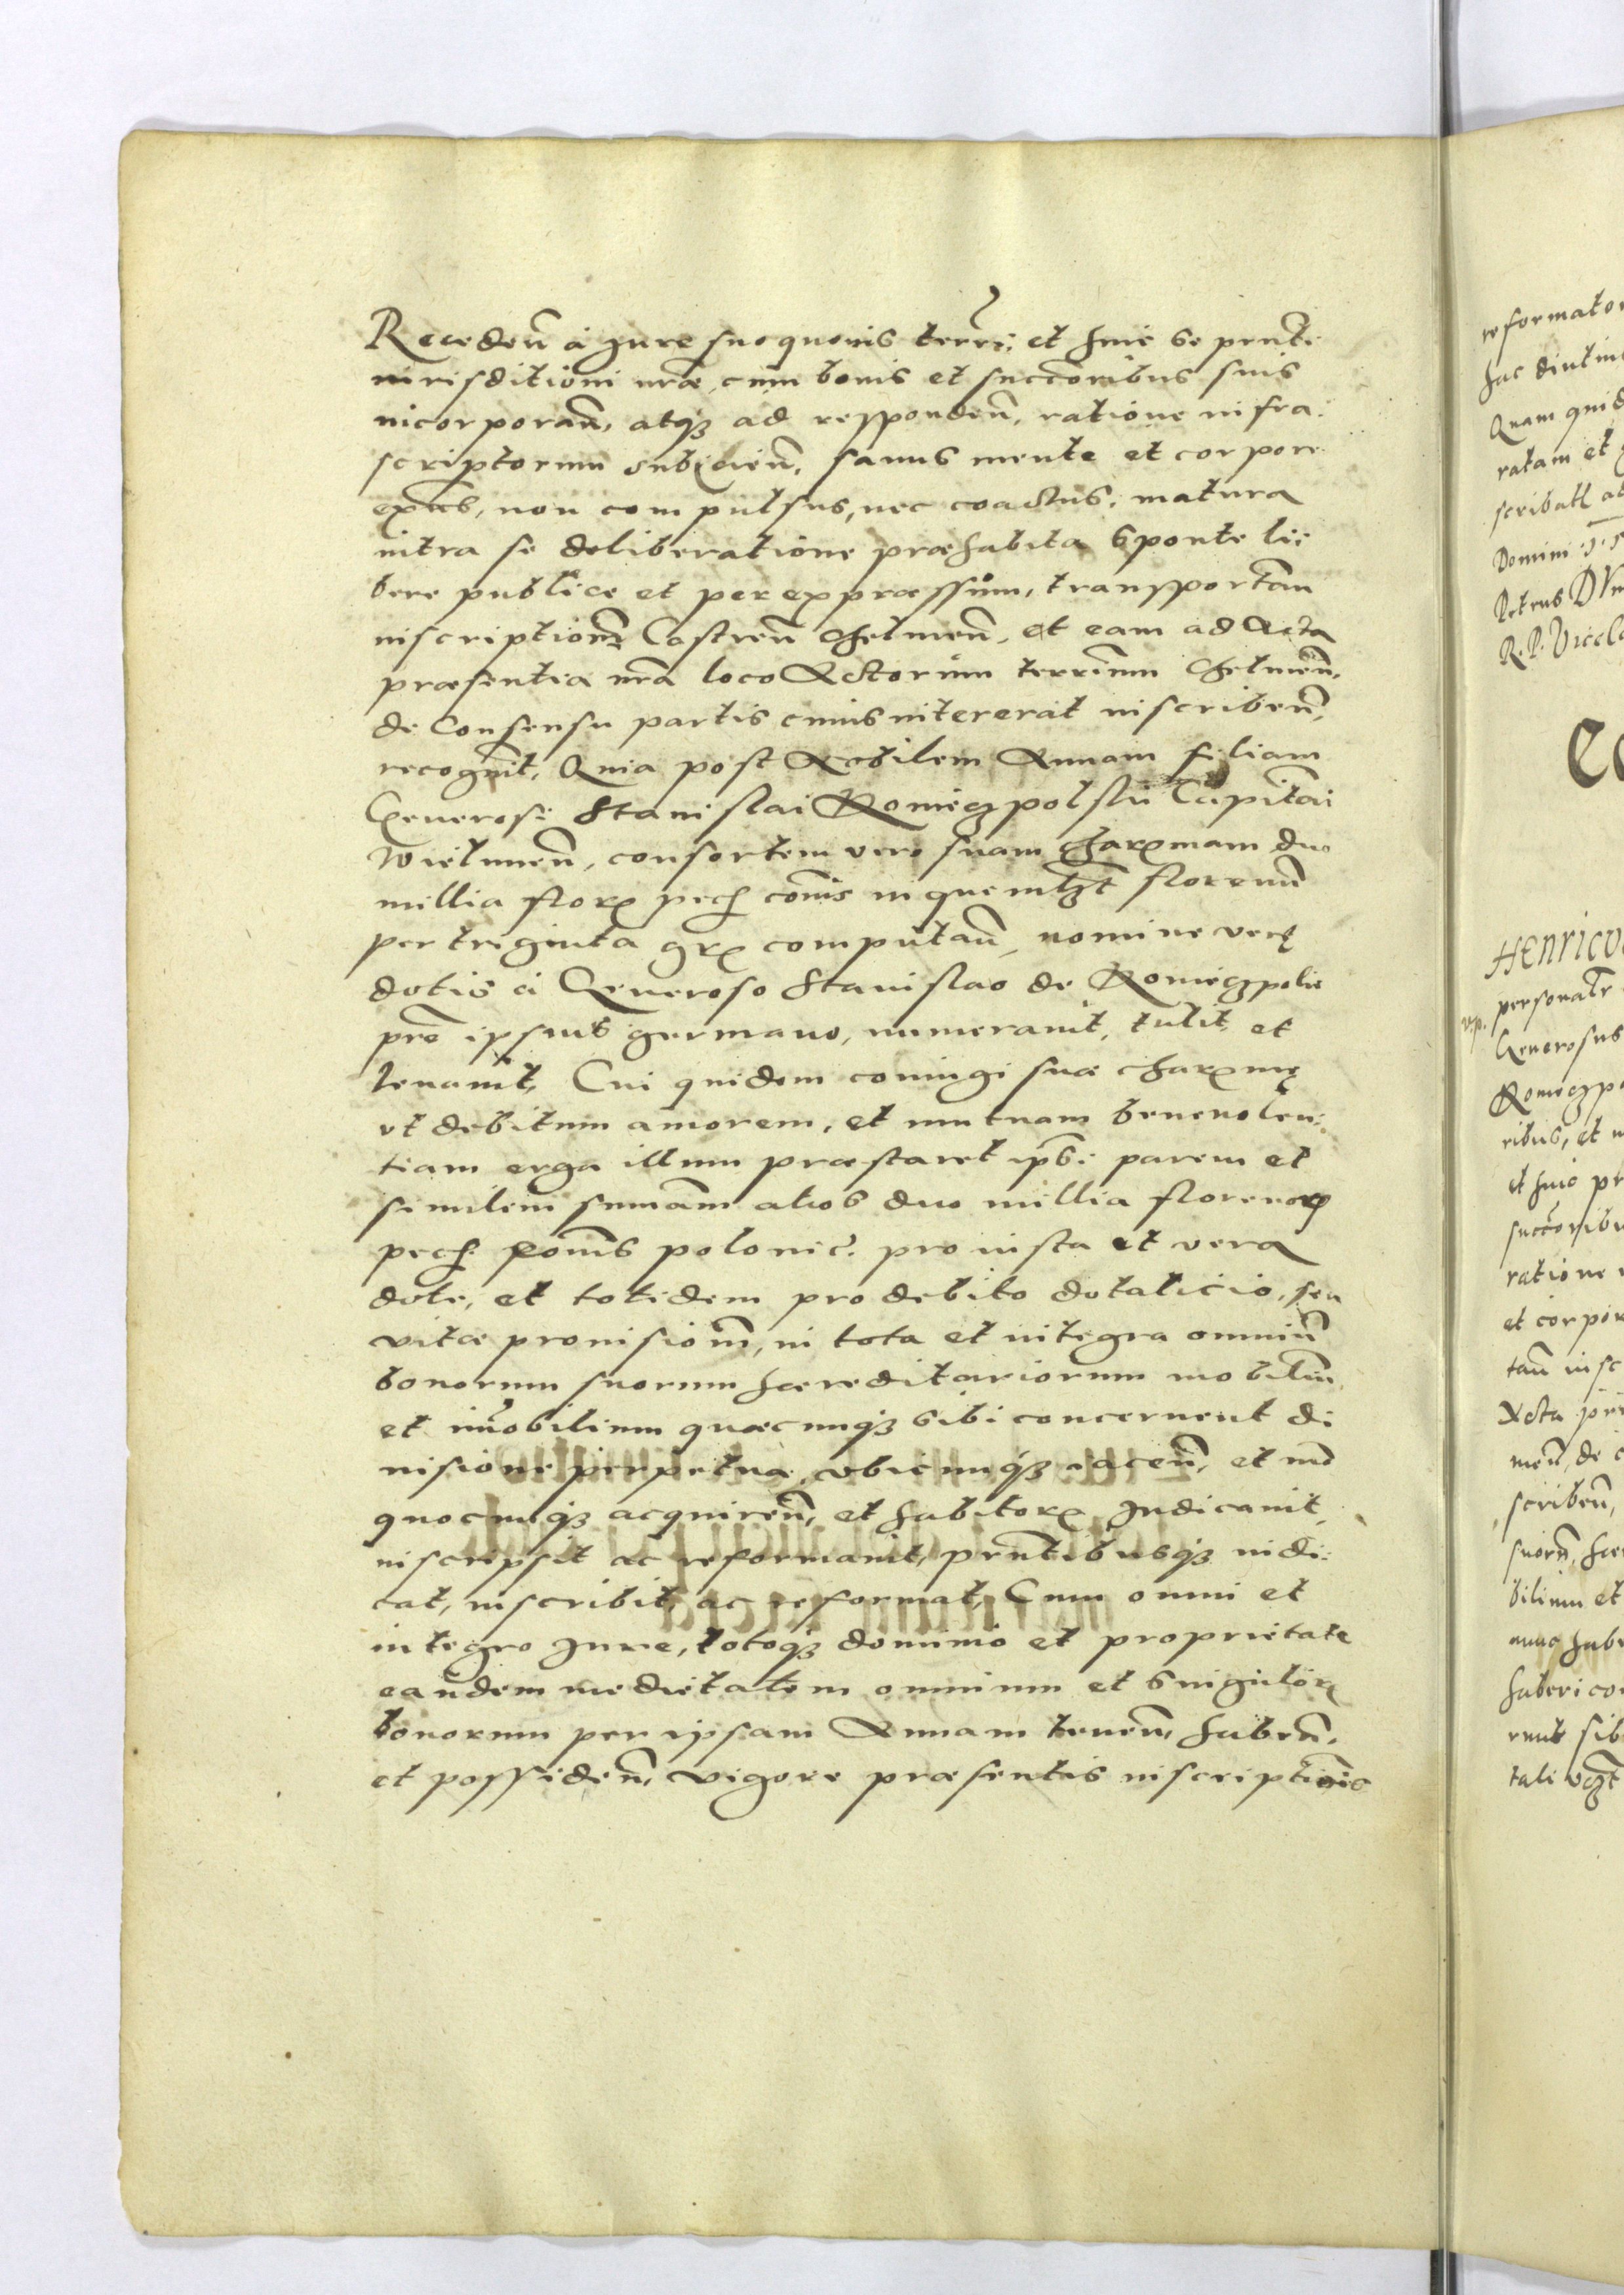 Recedeñ à Jure suo quovis terri: et huic se prnti
iurisditioni nræ, cum bonis et succoribus suis
incorporañ, atqȝ ad respondeñ, ratione infra
scriptorum subijcieñ, sanus mente et corpore
exñs, non compulsus, nec coactus, matura
intra se deliberatione præhabita sponte li:
bere publice et per expressum, transportañ
inscriptionē Castreñ Chelmeñ, et eam ad Acta
præsentia nra loco Actorum terrium Chelmeñ,
de Consensu partis cuius intererat inscribeñ,
recognit, Quia post Nobilem Annam filiam
Generosi Stanislai Konieczpolskii Capitai
Wieluneñ, consortem vero suam charxmam duo
millia florx pecȝ cõnis in quemlzt florenū
per triginta grx computañ, nomine verę
dotis à Generoso Stanislao de Koniecpolie
prē ipsius germano, numeravit, tulit et
levavit, Cui quidem coniugi suæ charxmę
vt debitum amorem, et mutuam benevolen:
tiam erga illum præstaret ipsi: parem et
similem summam alios duo millia florenorx
pecȝ cõnis polonic. pro iusta et vera
dote, et totidem pro debito dotalicio, seu
vitæ provisionē, in tota et integra omniū
bonorum suorum hæreditariorum mobiliū
et imobilium quæcunqȝ sibi concernent di
visione perpetua, vbicunqȝ iaceñ, et mō
quocunqȝ acquireñ, et habitorx Indicavit,
inscripsit ac reformavit, prntibusqȝ indi:
cat, inscribit, ac reformat, Cum omni et
integro Jure, totoqȝ dominio et proprietate
eandem medietatem omnium et singulorx
bonorum per ipsam Annam teneñ, habeñ,
et possideñ, vigore præsentis inscriptionis
reformator
hac diutin
Quam quid
ratam et
scribatl
Domini
Petrus
R. P. Vicec
Henricu
v.p. personalr
Generosus
Koniecpo
ribus, et
et huic pr
succoribu
ratione
et corpor
tañ insc
Acta
meñ, de c
scribeñ,
suorū, hæ
bilium et
nunc habi
haberi con
rent sib
tali vtzt